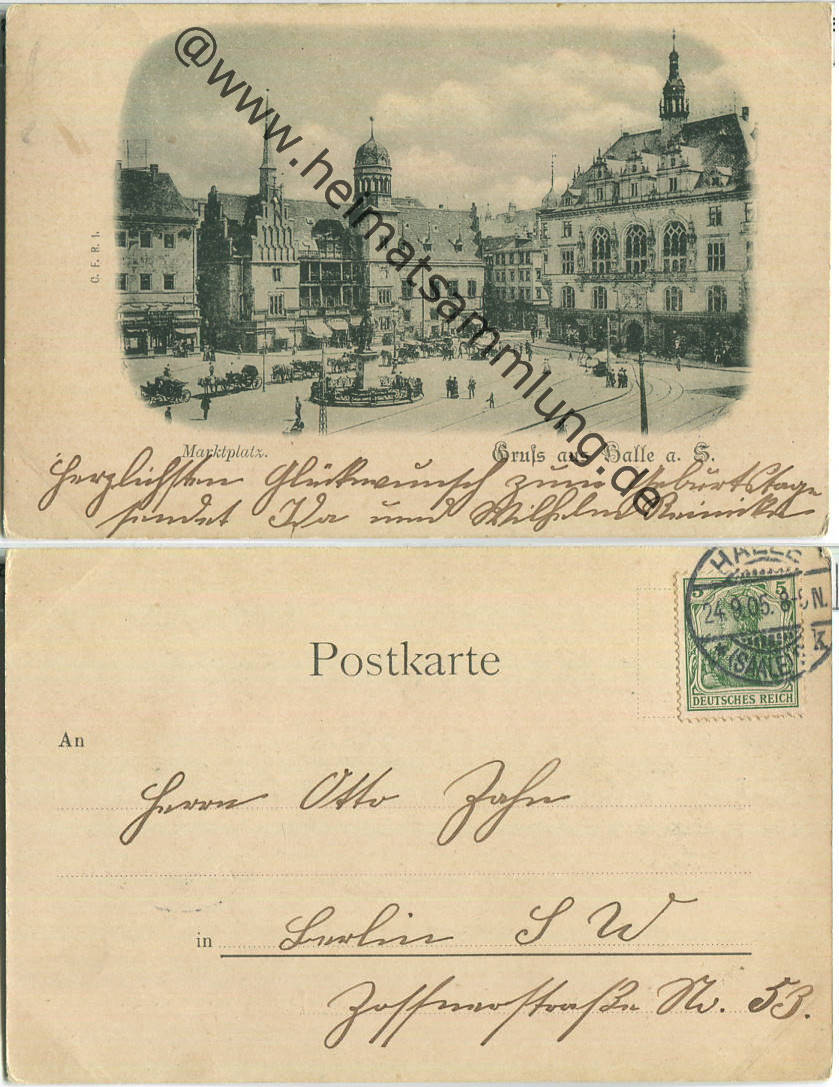 @www.heimatsammlung.de
C. F. R. 1.
Marktplatz.
Gruss aus Halle a. S.
Herzlichsten Glückwunsch zum Geburtstage
sendet Ida und Wilhelm Reinicke
HALLE
5 5
24.9.05. 8-9 N.
*(SAALE)* k
DEUTSCHES REICH
Postkarte
An
Herrn Otto Zahn
in Berlin S W
Zossenerstraße No. 53.